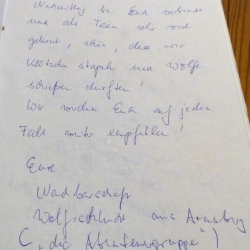 Nachmittag bei Euch verbracht
und als Team sehr viel
gelernt, schön, dass wir
Klötzchen stapeln und Wölfe
schießen durften!
Wir werden Euch auf jeden
Fall weiter empfehlen!
Eure
Wolfsschlucht aus Arnsberg
("die Abenteuergruppe")